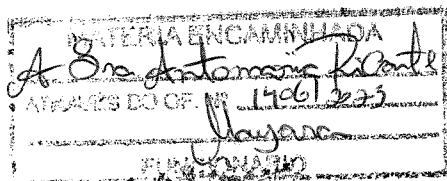 MATERIA ENCAMINHADA
A Sra Antomaria Ricarte
ATRAVÉS DO OF. Nº 1406/2023
Mayara
FUNCIONÁRIO